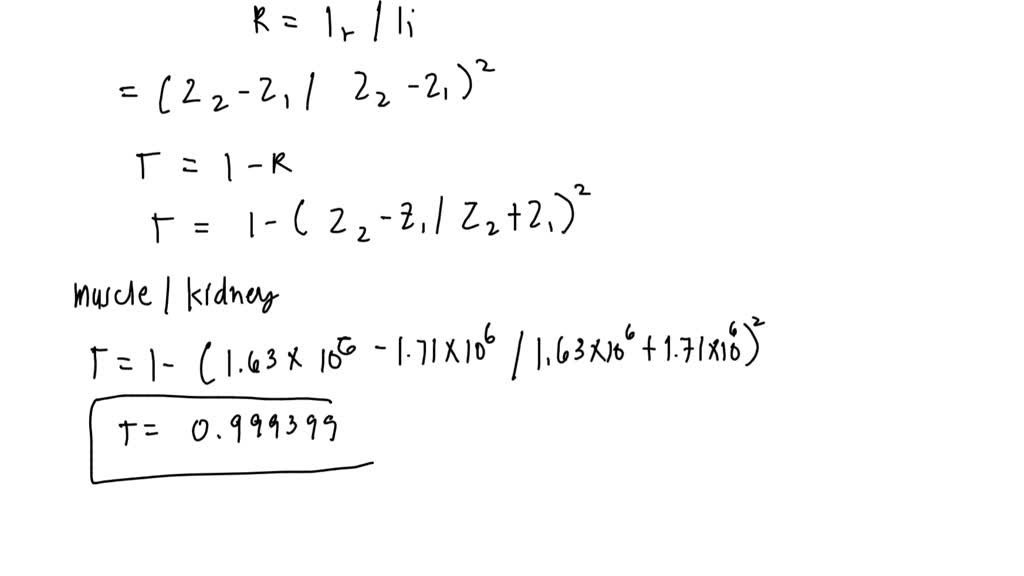 R = Ir / Ii
= (Z2 - Z1 / Z2 - Z1)²
T = 1 - R
T = 1 - ( Z2 - Z1 / Z2 + Z1)²
muscle / kidney
T = 1 - (1.63 × 10⁶ - 1.71 × 10⁶ / 1.63 × 10⁶ + 1.71 × 10⁶)²
T = 0.999399